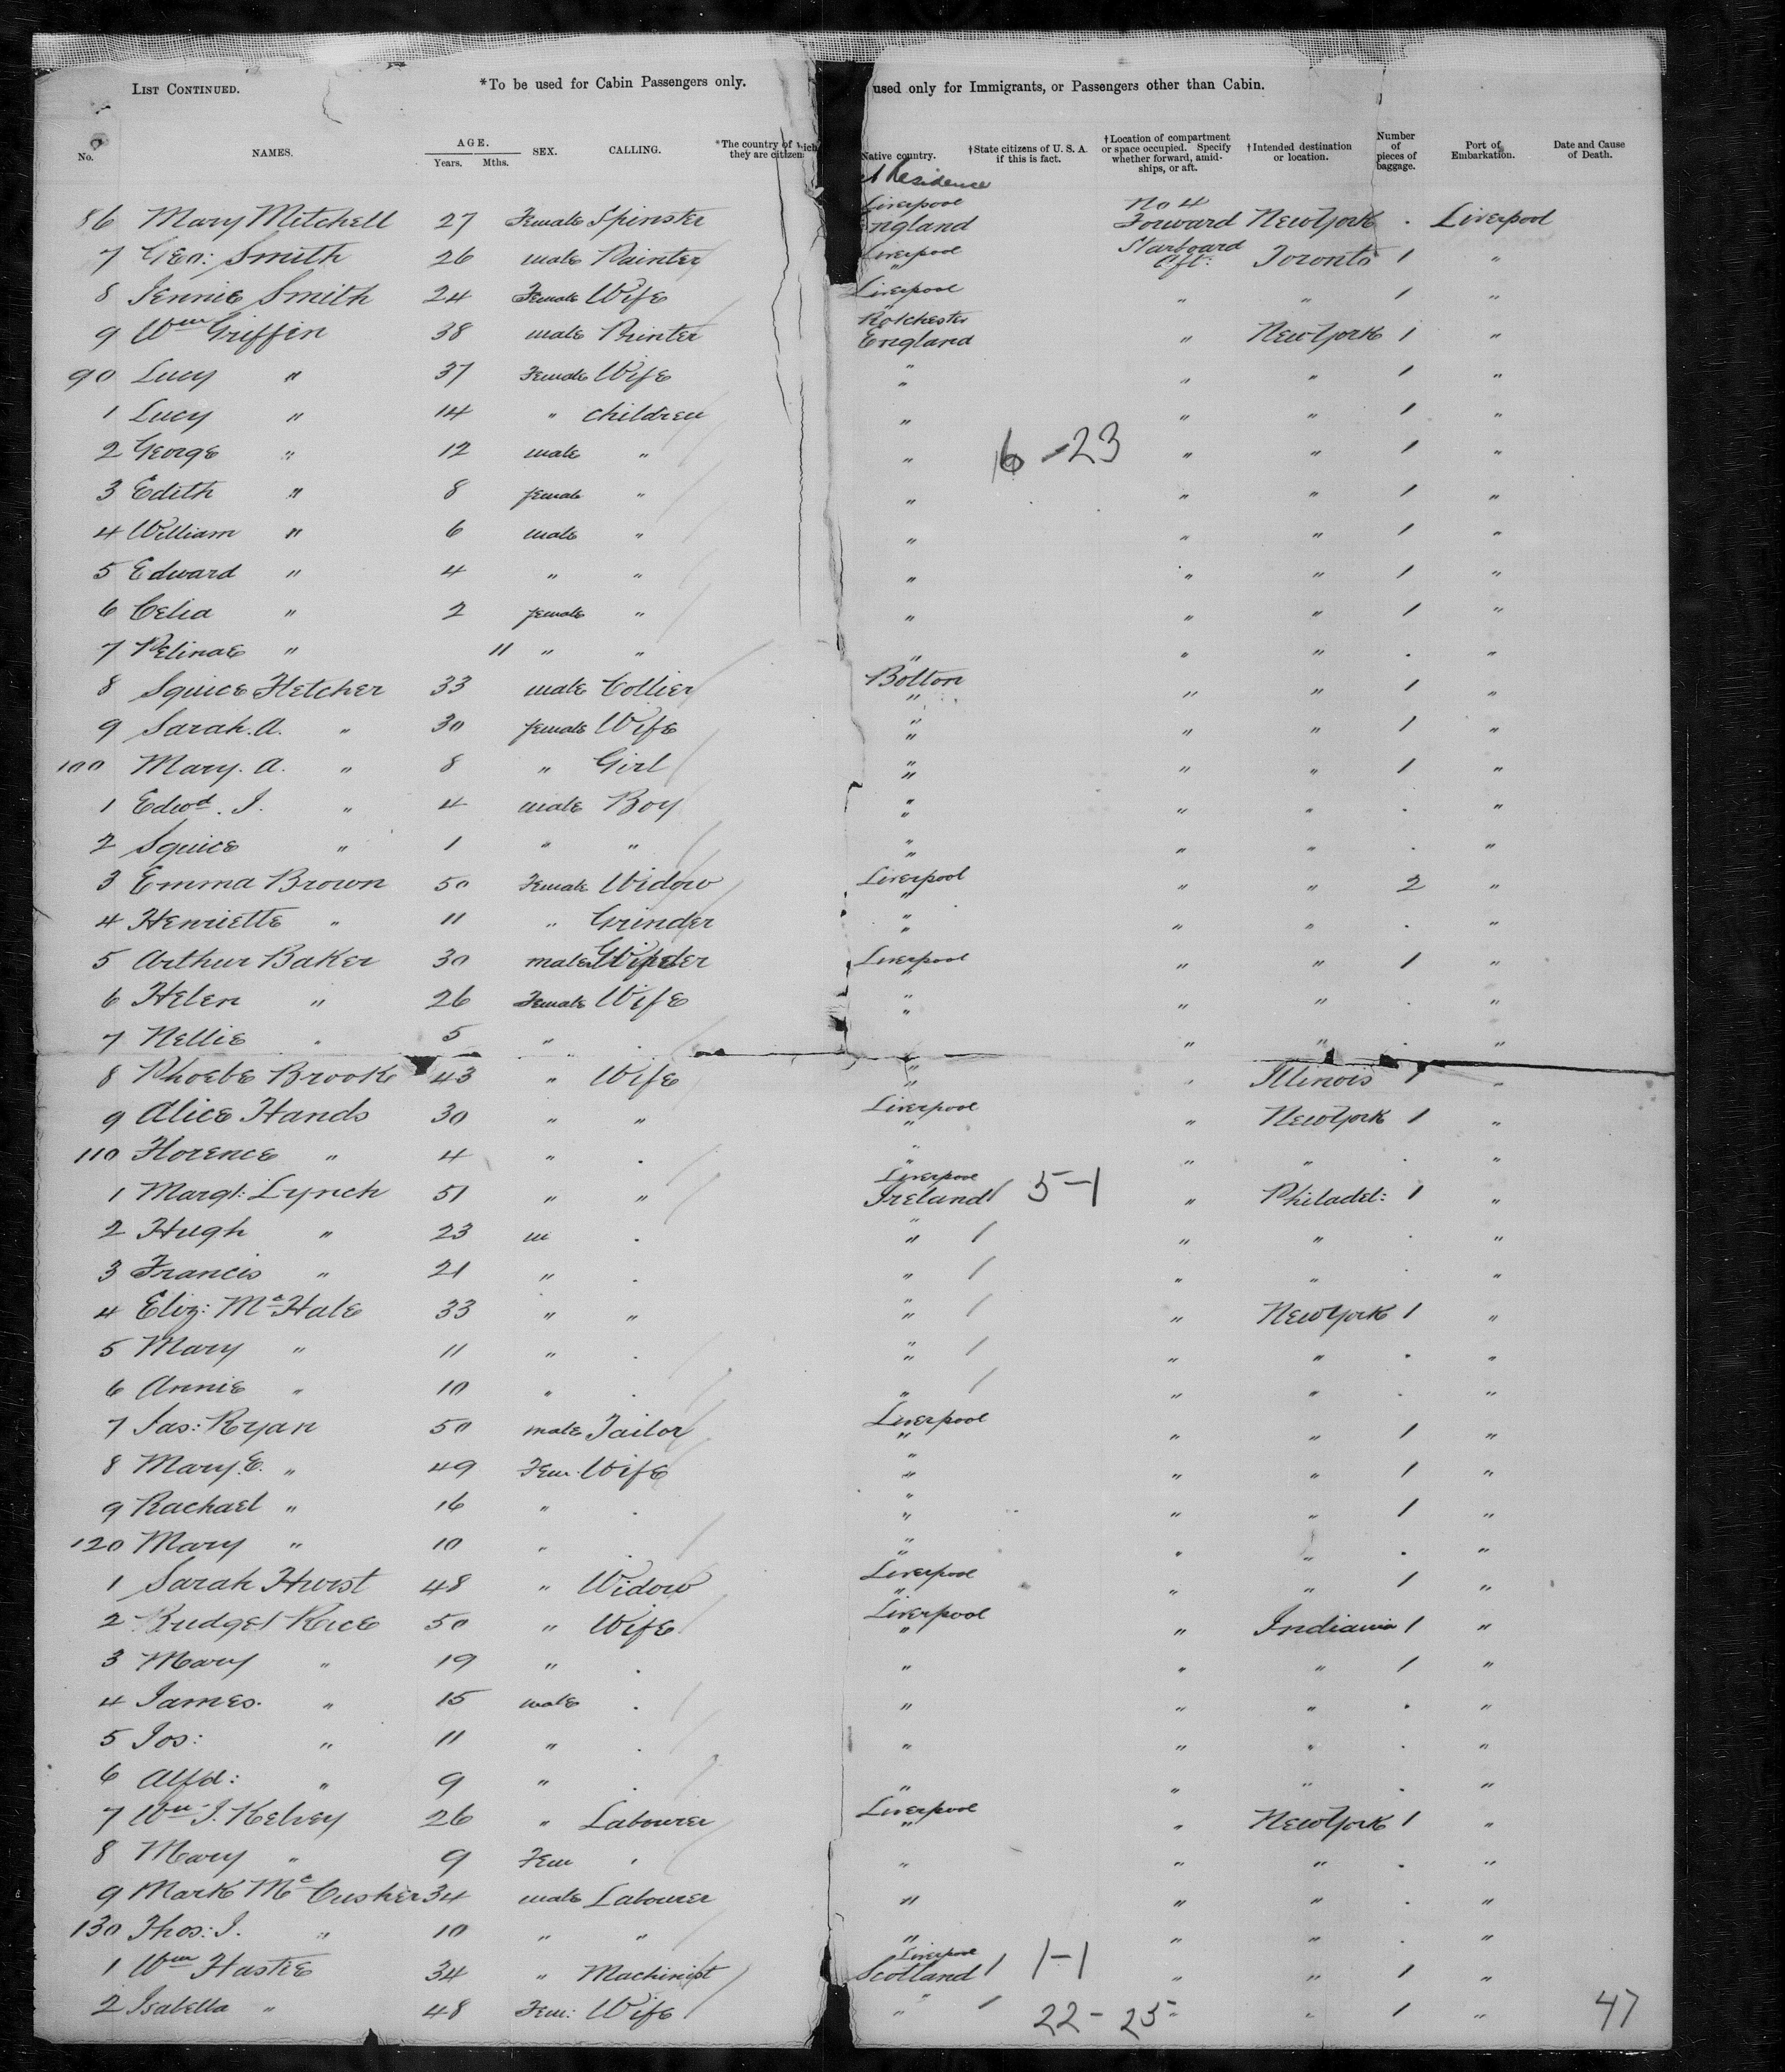 LIST CONTINUED. *To be used for Cabin Passengers only. used only for Immigrants, or Passengers other than Cabin.
No. NAMES. AGE. Years. Mths. SEX. CALLING. *The country of which they are citizens Native country. †State citizens of U. S. A. if this is fact. †Location of compartment or space occupied. Specify whether forward, amid-ships, or aft. †Intended destination or location. Number of pieces of baggage. Port of Embarkation. Date and Cause of Death.
Residence
Liverpool No 4
86 Mary Mitchell 27 Female Spinster England Forward New York . Liverpool
7 Geo: Smith 26 male Painter Liverpool " Starboard Aft: Toronto 1 "
8 Jennie Smith 24 Female Wife Liverpool " " 1 "
9 Wm Griffin 38 male Printer England " New York 1 "
90 Lucy " 37 Female Wife " " " " 1 "
1 Lucy " 14 " children " " " 1 "
2 George " 12 male " " 6-23 " " 1 "
3 Edith " 8 female " " " " 1 "
4 William " 6 male " " " " 1 "
5 Edward " 4 " " " " " 1 "
6 Celia " 2 female " " " " 1 "
7 " 11 " " " " " . "
8 Squice Fletcher 33 male Collier Bolton " " " 1 "
9 Sarah. A. " 30 female Wife " " " " 1 "
100 Mary. A. " 8 " Girl " " " " 1 "
1 Edwd. J. " 4 male Boy " " " " . "
2 Squice " 1 " " " " " " . "
3 Emma Brown 50 Female Widow Liverpool " " " 2 "
4 Henriette " 11 " Grinder " " " " . "
5 Arthur Baker 30 male Liverpool " " " 1 "
6 Helen " 26 Female Wife " " " " . "
7 Nellie " 5 " . " " . "
8 Phoebe Brook 43 " Wife " " . Illinois 1 "
9 Alice Hands 30 " " Liverpool " " New York 1 "
110 Florence " 4 " . " " " " . "
Liverpool
1 Margt: Lynch 51 " " Ireland 1 5-1 " Philadel: 1 "
2 Hugh " 23 m . " " 1 " " . "
3 Francis " 21 " . " 1 " " . "
4 Eliz: McHale 33 " " " " 1 " New York 1 "
5 Mary " 11 " . " " 1 " " . "
6 Annie " 10 " . " 1 " " . "
7 Jas: Ryan 50 male Tailor Liverpool " " " 1 "
8 Mary. E. " 49 Fem. Wife " " " " 1 "
9 Rachael " 16 " . " " " " 1 "
120 Mary " 10 " . " " " " . "
1 Sarah Hurst 48 " Widow Liverpool " " " 1 "
2 Bridget Rice 50 " Wife Liverpool " " Indiana 1 "
3 Mary " 19 " . " " " 1 "
4 James. " 15 male . " " " . "
5 Jos: " 11 " . " " " . "
6 Alfd: " 9 " . " " " . "
7 Wm J. Kelvey 26 " Labourer Liverpool " " New York 1 "
8 Mary " 9 Fem . " " " . "
9 Mark McCusker 34 male Labourer " " " . "
130 Thos: J. " 10 " " " " " . "
Liverpool
1 Wm Hastie 34 " Machinist Scotland 1 1-1 " " 1 "
2 Isabella " 48 Fem: Wife " 1 22-25 " " 1 " 47